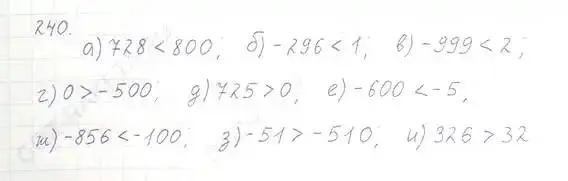 240.
а) 728 < 800; б) -296 < 1; в) -999 < 2;
г) 0 > -500; д) 725 > 0; е) -600 < -5,
ж) -856 < -100; з) -51 > -510; и) 326 > 32